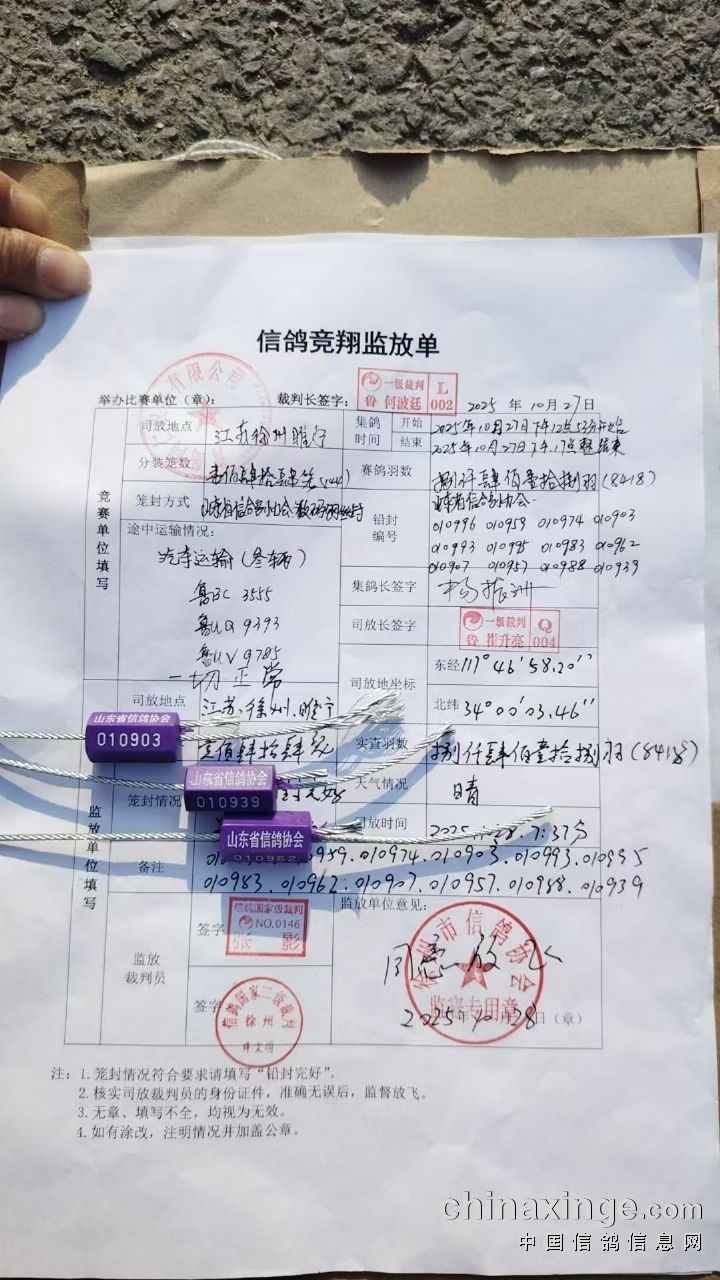 信鸽竞翔监放单
举办比赛单位（章）： 裁判长签字： 一级裁判 鲁 何波廷 L 002 2025 年 10月27日
有限公司
竞赛单位填写
司放地点 江苏徐州睢宁 集鸽时间 开始 2025年10月27日下午12点53分开始
结束 2025年10月27日下午17点整结束
分装笼数 壹佰肆拾肆笼(144) 赛鸽羽数 捌仟肆佰壹拾捌羽(8418)
笼封方式 山东省信鸽协会数码铅封 铅封编号 山东省信鸽协会
010996 010959 010974 010903
010993 010995 010983 010962
010907 010957 010988 010939
途中运输情况：
汽车运输(叁辆)
3555
9393
鲁UV 9785
一切正常
集鸽长签字 杨振洲
司放长签字 一级裁判 鲁 崔升亮 Q 004
司放地坐标 东经 117°46′58.20″
北纬 34°00′03.46″
监放单位填写
司放地点 江苏.徐州.睢宁
壹佰肆拾肆笼 实查羽数 捌仟肆佰壹拾捌羽(8418)
笼封情况 完好 天气情况 晴
司放时间 7:37分
山东省信鸽协会
010903
山东省信鸽协会
010939
山东省信鸽协会
010962
备注 959.010974.010903.010993.010995
010983.010962.010907.010957.010988.010939
监放裁判员
签字 信鸽国家级裁判 NO.0146 张 影
签字 信鸽国家二级裁判 徐州
监放单位意见：
同意放飞
徐州市信鸽协会
监赛专用章
2025年10月28日（章）
注：1.笼封情况符合要求请填写“铅封完好”。
2.核实司放裁判员的身份证件，准确无误后，监督放飞。
3.无章、填写不全，均视为无效。
4.如有涂改，注明情况并加盖公章。
chinaxinge.com
中国信鸽信息网